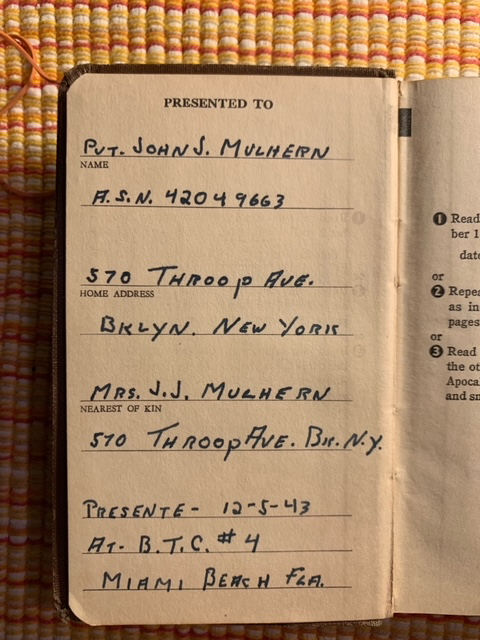 PRESENTED TO
PVT. JOHN J. MULHERN
NAME
A.S.N. 42049663
570 THROOP AVE.
HOME ADDRESS
BKLYN. NEW YORK
MRS. J.J. MULHERN
NEAREST OF KIN
570 THROOP AVE. BK. N.Y.
PRESENTE- 12-5-43
AT- B.T.C. #4
MIAMI BEACH FLA.
❶ Read
ber 1
date
or
❷ Repea
as in
pages
or
❸ Read
the ot
Apoca
and sn